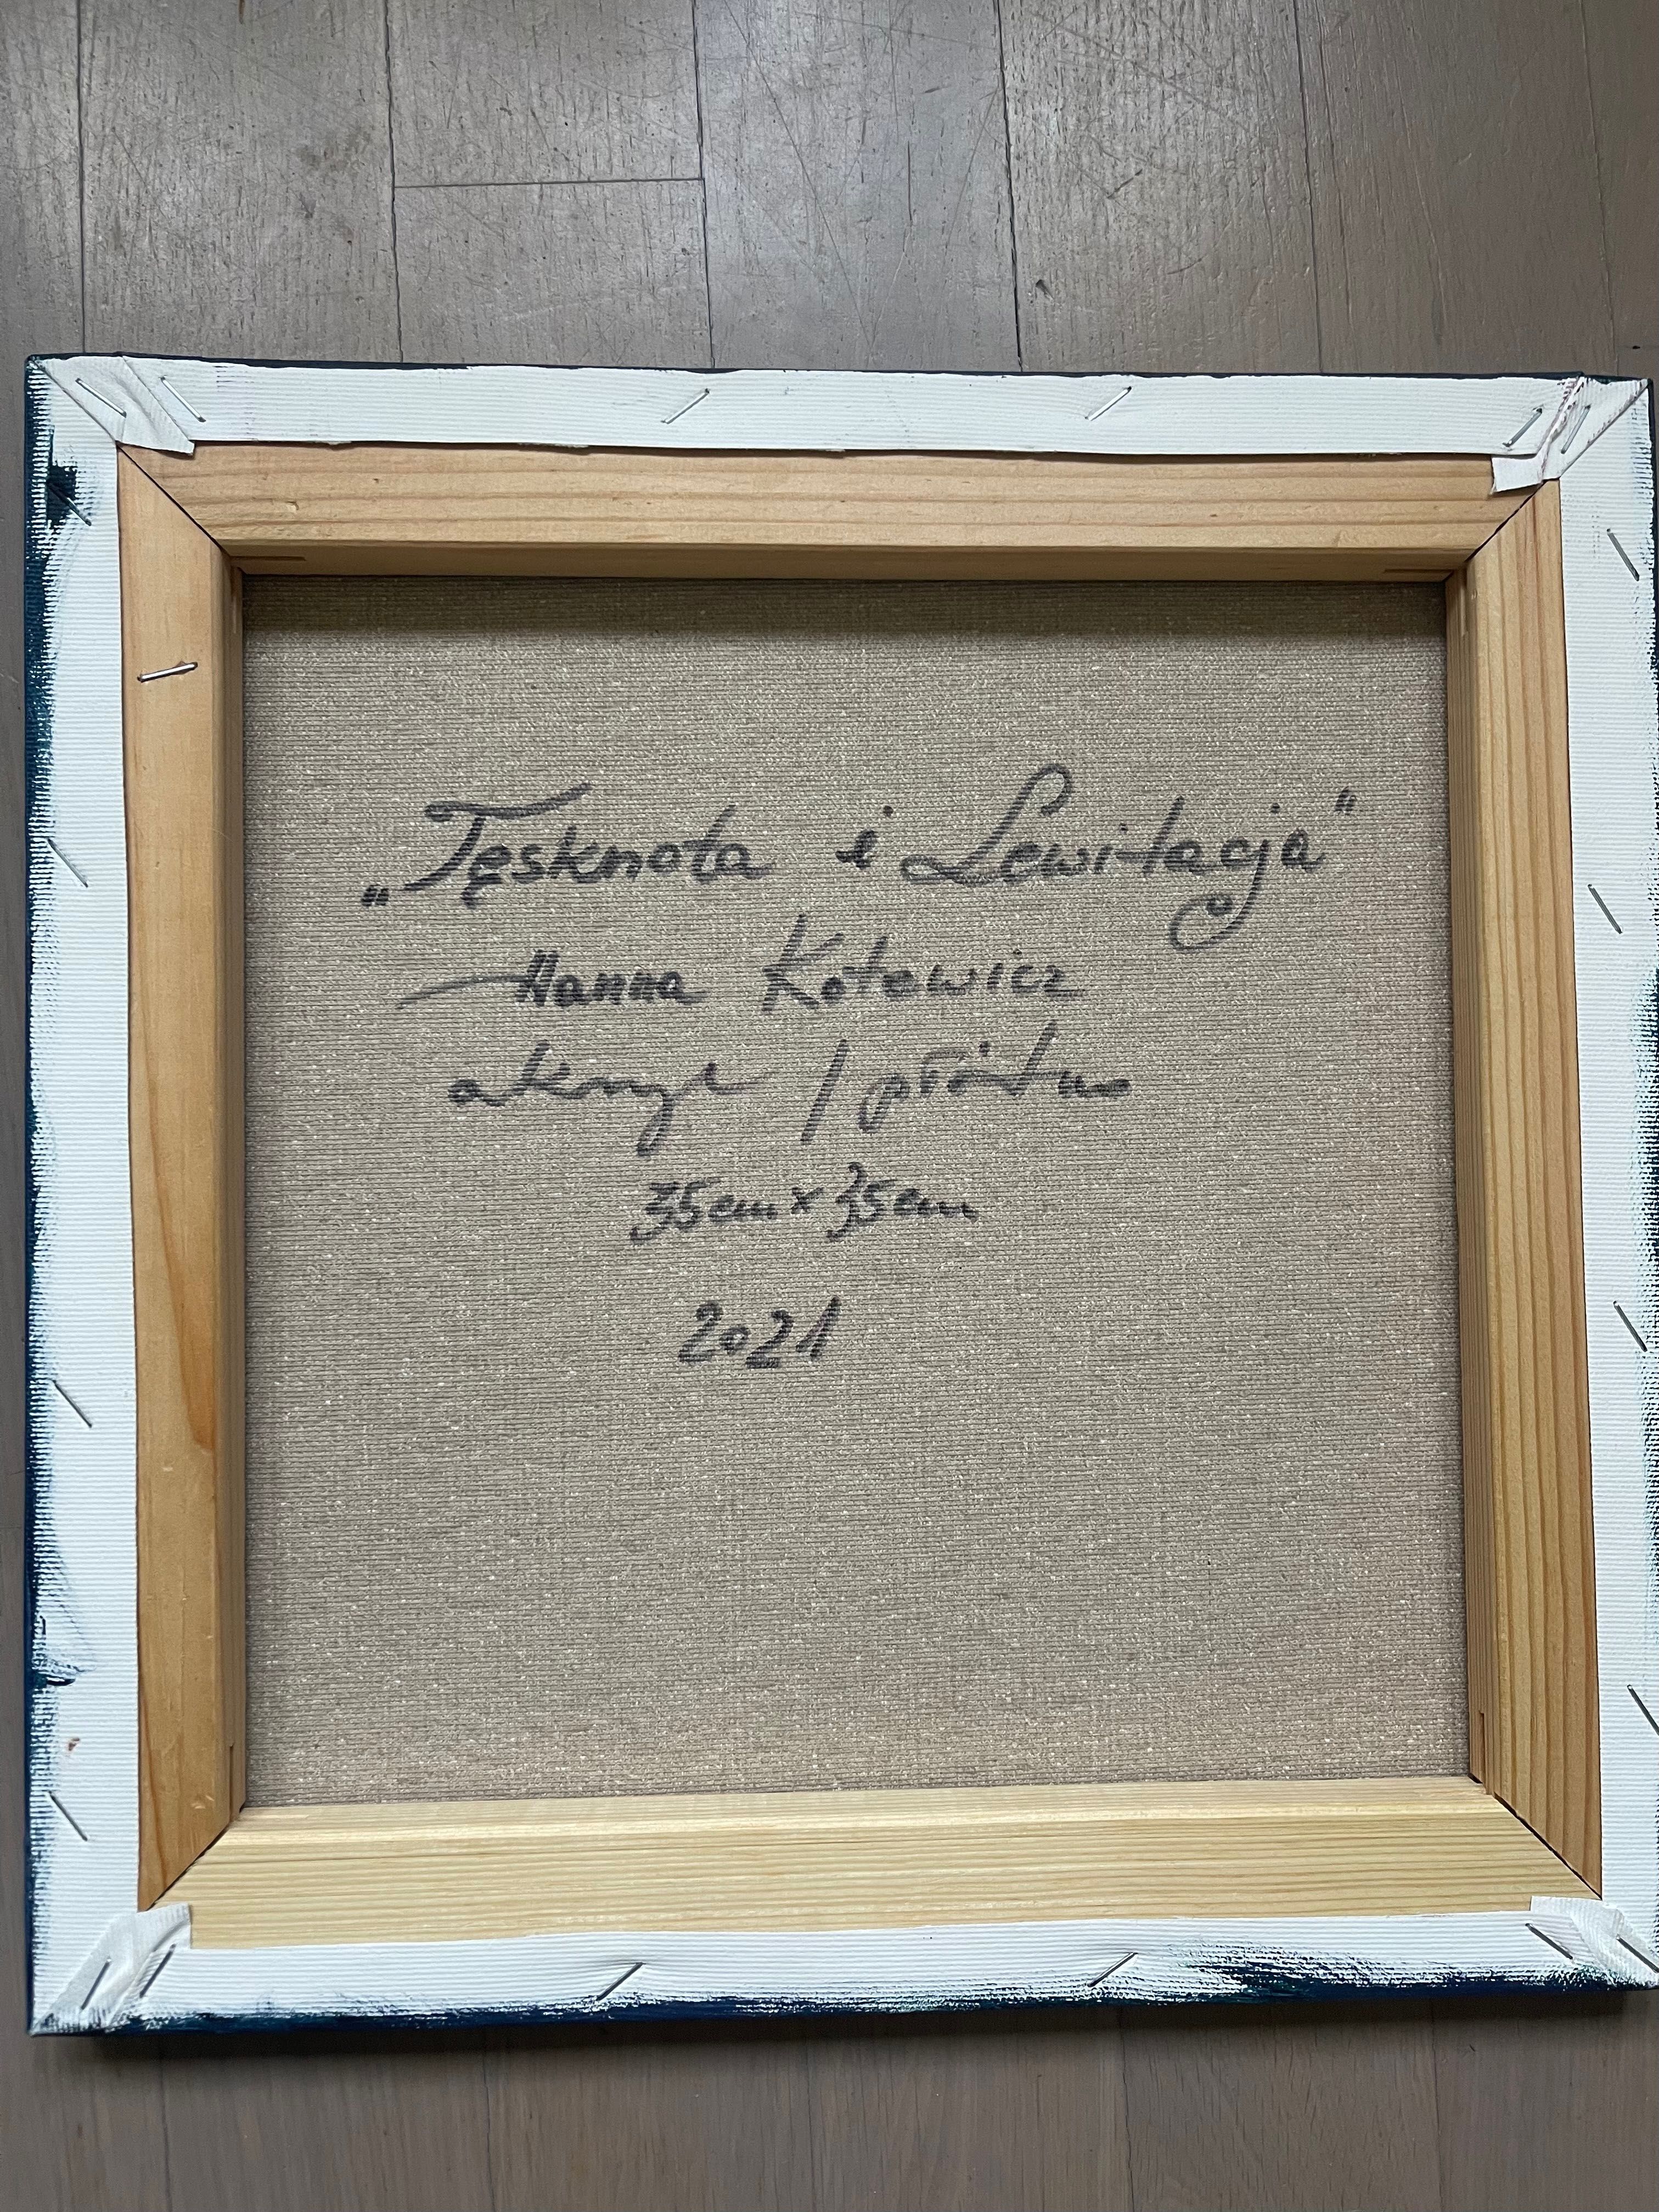 „Tęsknota i Lewitacja"
Hanna Kotowicz
akryl / płótno
35cm x 35cm
2021